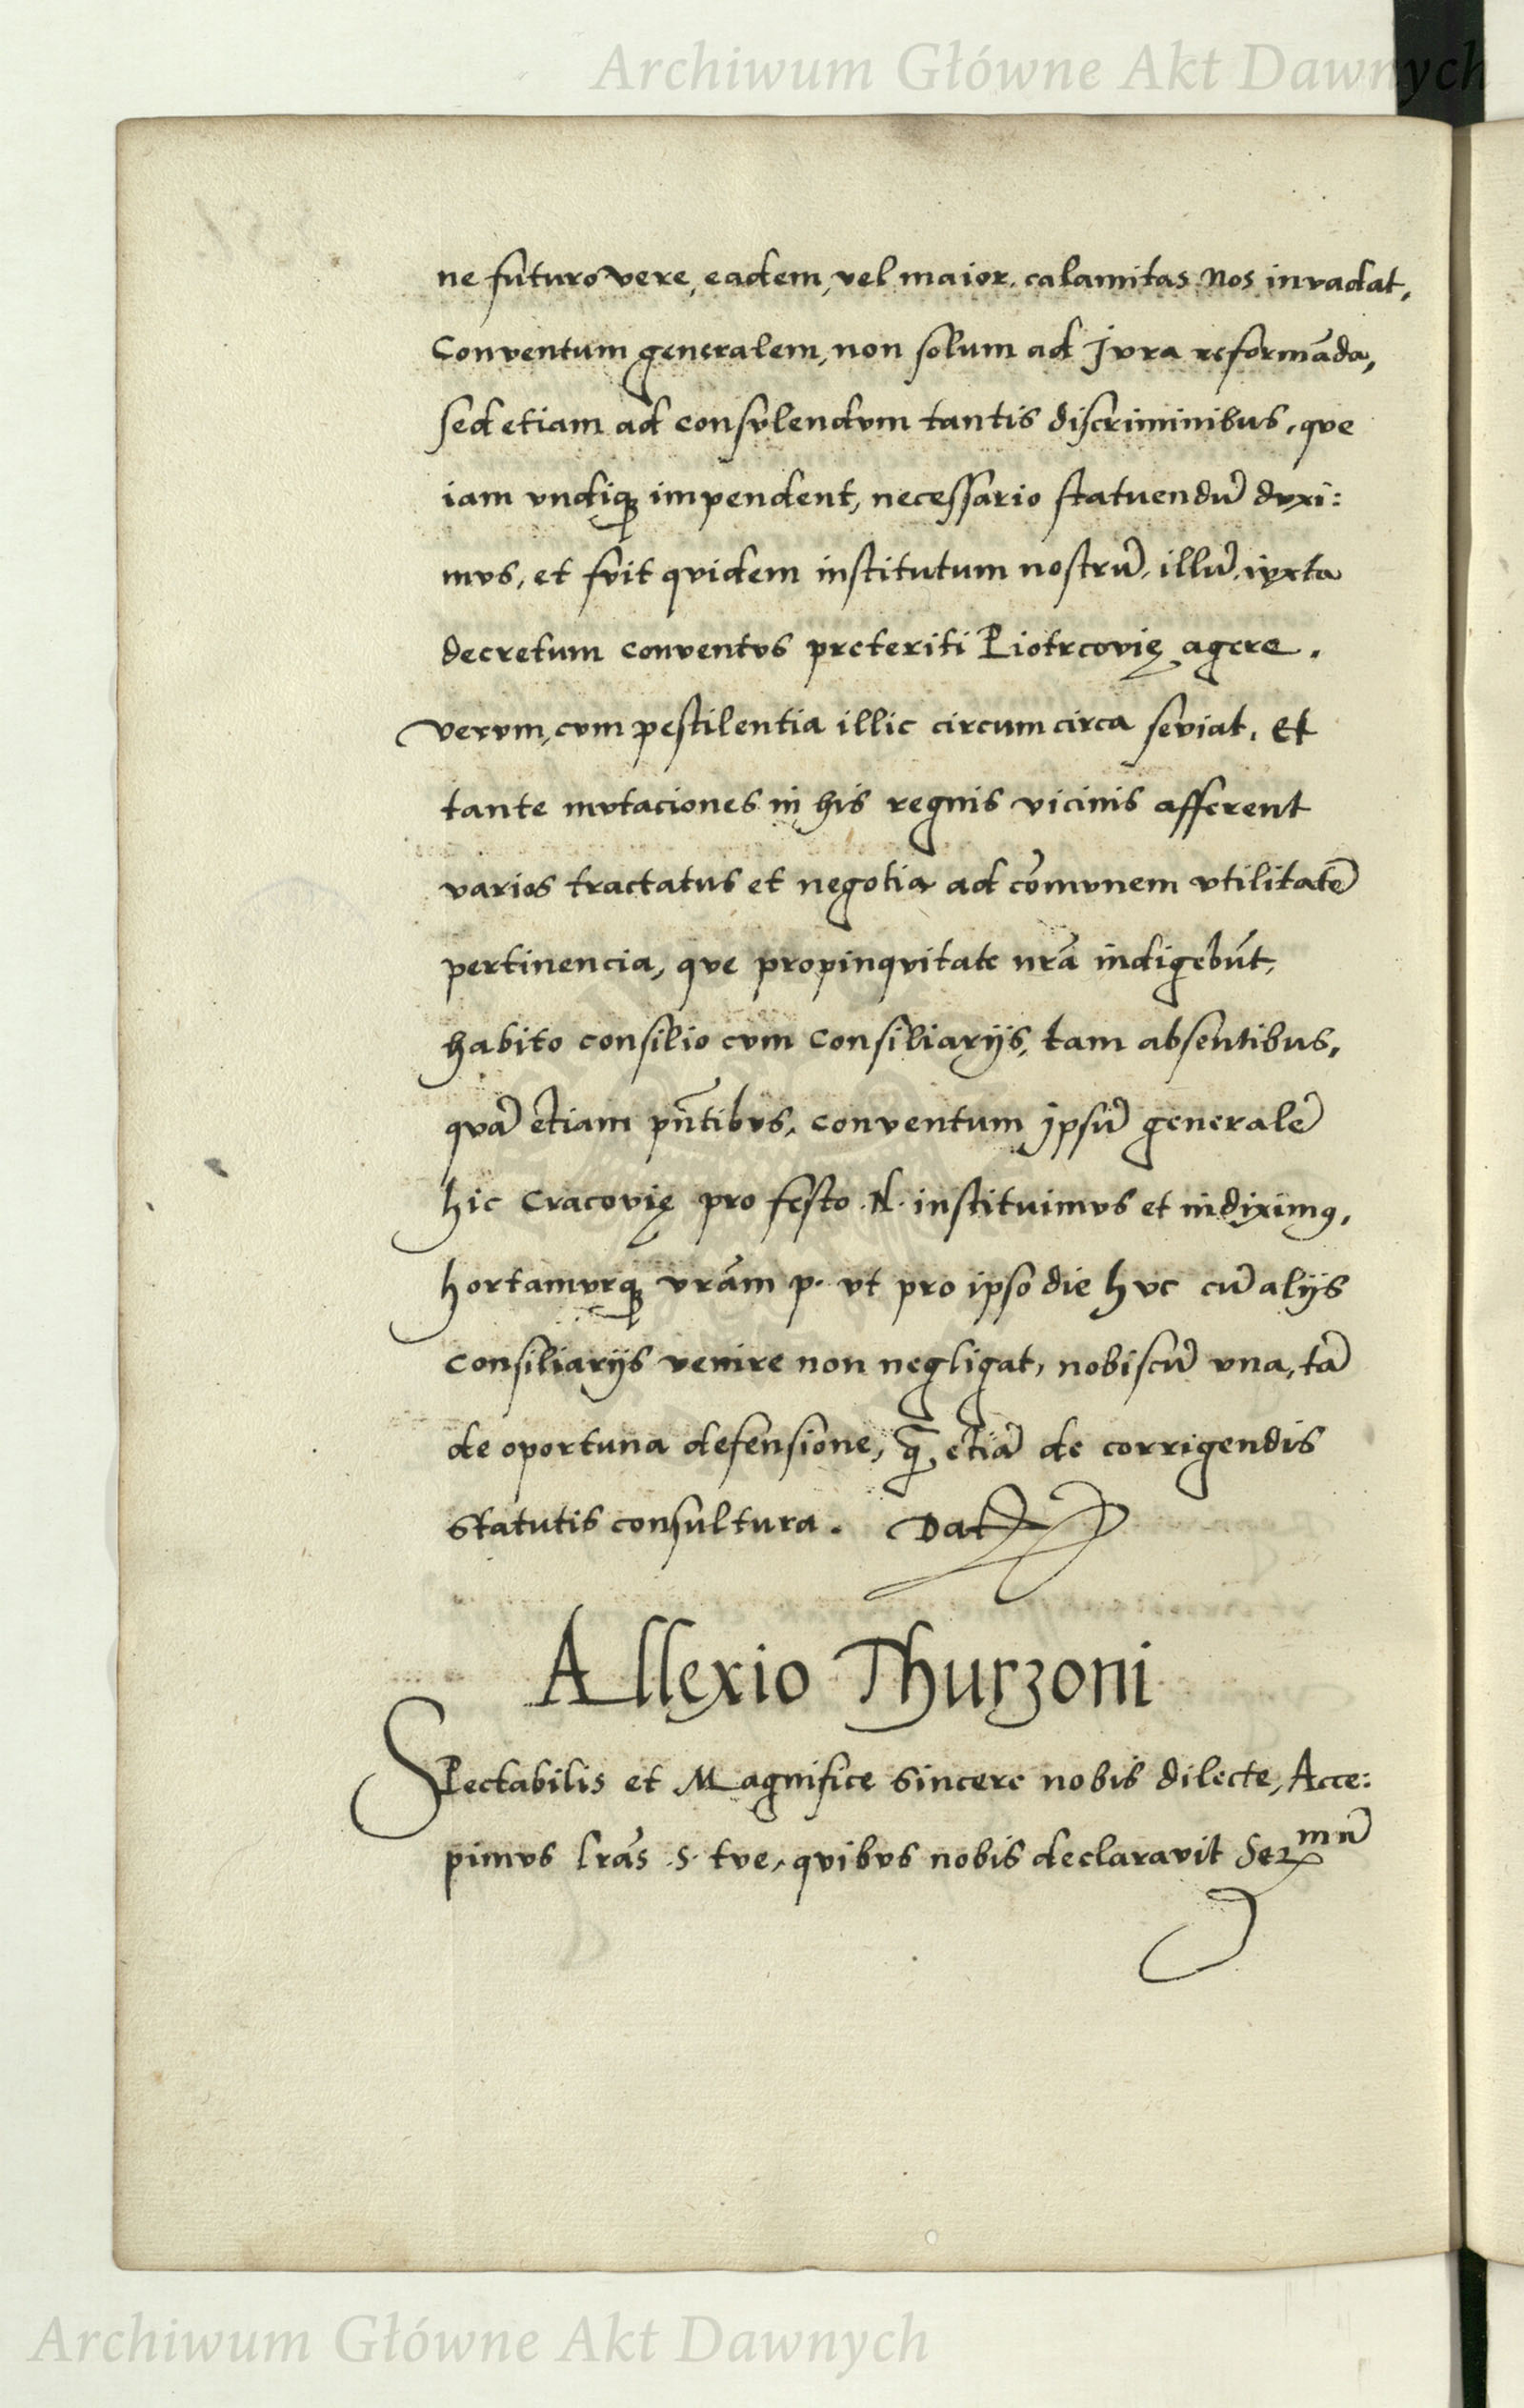 Archiwum Główne Akt Dawnych
ne futuro vere, eadem, vel maior. calamitas Nos invadat,
Conventum generalem, non solum ad Jvra reformãda,
sed etiam ad consvlendvm tantis discriminibus, qve
iam vndiqꝫ impendent, necessario statuendũ dvxi:
mvs, et fvit qvidem institutum nostrũ, illũ, ivxta
decretum conventvs preteriti Piotrcovię agere.
Vervm, cvm pestilentia illic circumcirca seviat, Et
tante mvtaciones in his regnis vicinis afferent
varios tractatus et negotia ad cõmvnem vtilitatẽ
pertinencia, qve propinqvitate nrã indigebũt,
habito consilio cvm consiliarijs, tam absentibus,
qvã etiam pñtibvs, conventum jpsũ generalẽ
hic Cracovię pro festo .N. instituimvs et indiximꝰ,
hortamvrqꝫ vrãm p. vt pro ipso die hvc cũ alijs
consiliarijs venire non negligat, nobiscũ vna, tã
de oportuna defensione, q̃ꝫ etiã de corrigendis
statutis consultura. Dat
Allexio Thurzoni
SPectabilis et Magnifice sincere nobis dilecte, Acce:
pimvs lrãs .S. tve, qvibvs nobis declaravit Serᵐũ
Archiwum Główne Akt Dawnych